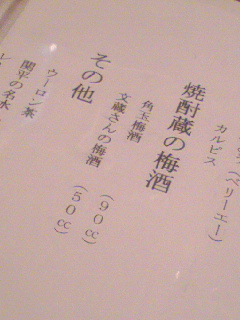 (ベリーエー)
カルピス
焼酎蔵の梅酒
角玉梅酒 (90cc)
文蔵さんの梅酒 (50cc)
その他
ウーロン茶
関平の名水